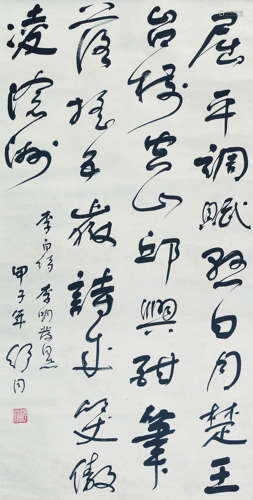 屈平詞賦懸日月楚王
台榭空山邱興酣筆
落搖五嶽詩成笑傲
凌滄洲
李白詩 李明
甲子年 舒同